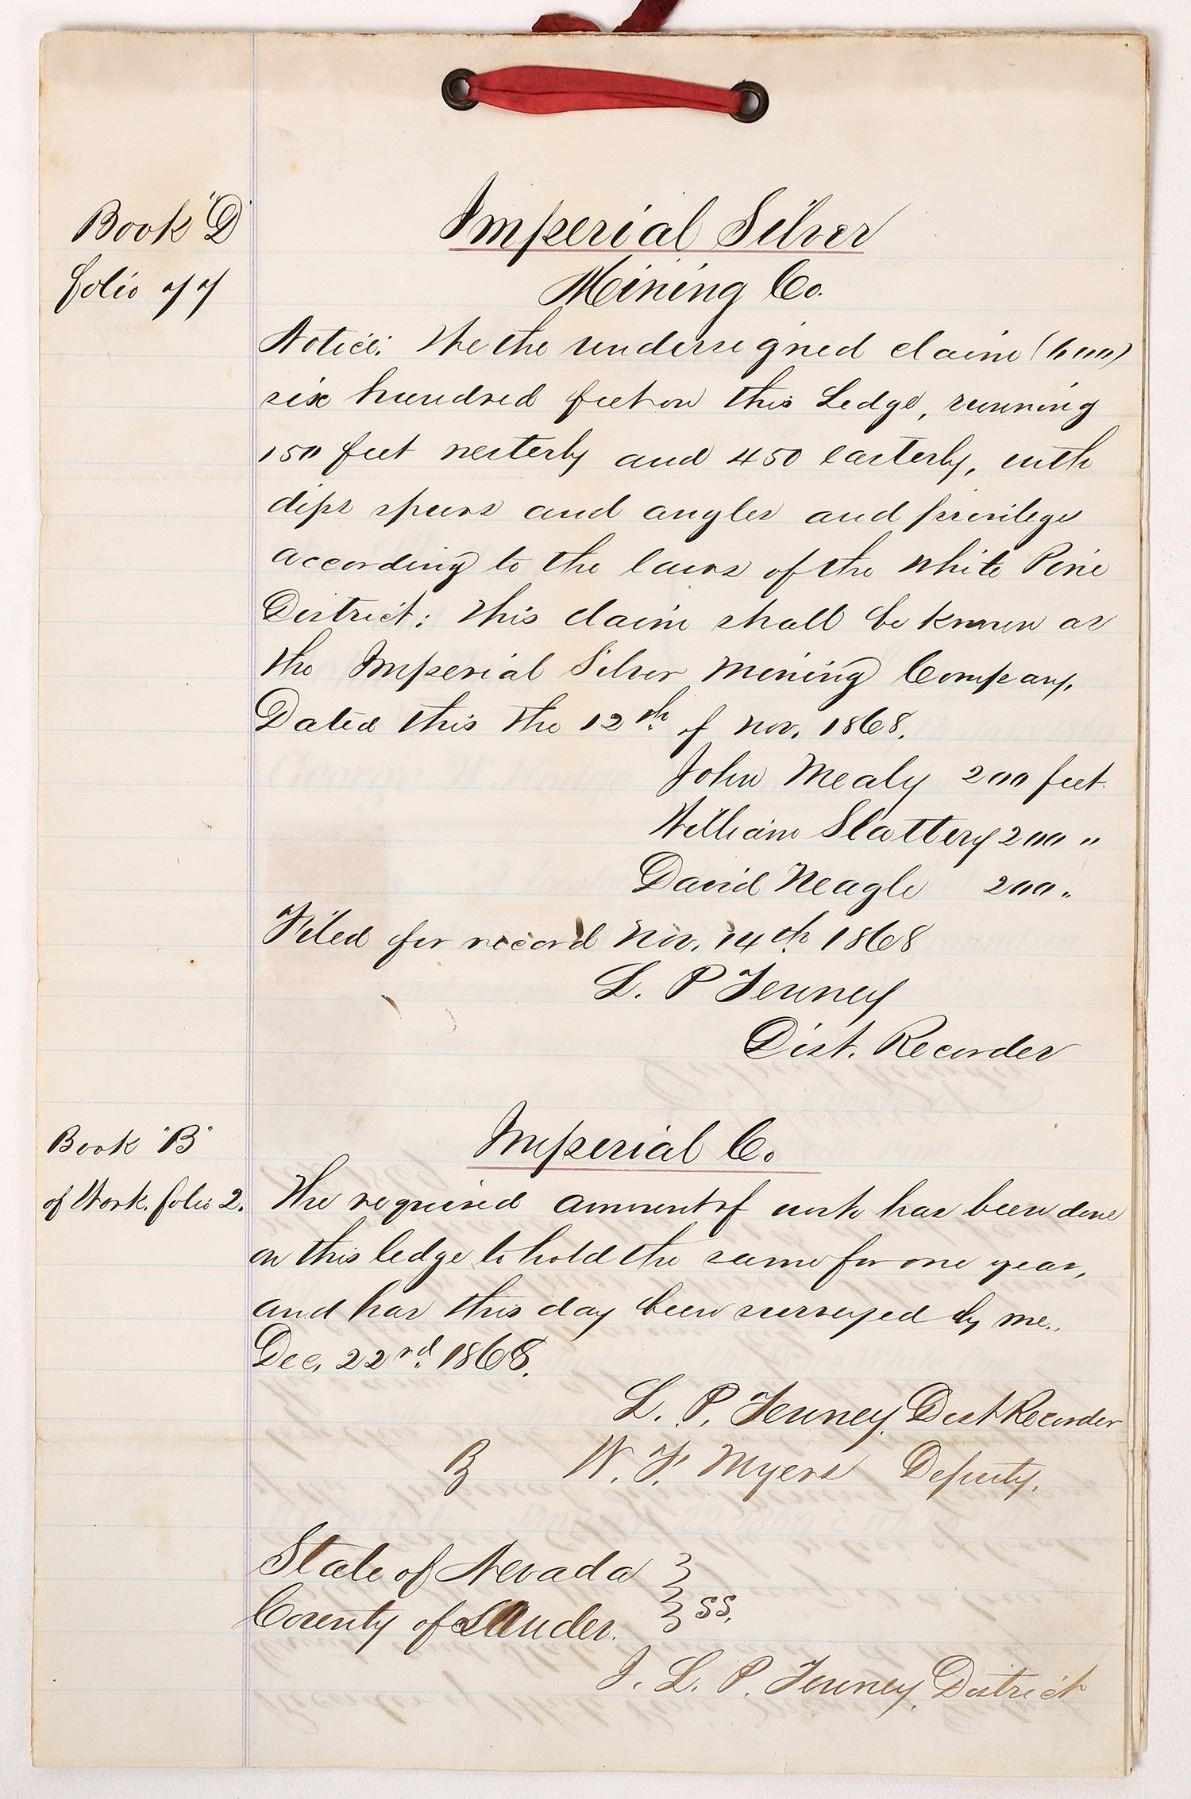 Book "D"
folio 77
Imperial Silver
Mining Co.
Notice: We the undersigned claim (600)
six hundred feet on this Ledge, running
150 feet westerly and 450 easterly, with
dips spurs and angles and privileges
according to the laws of the White Pine
District: This claim shall be known as
the Imperial Silver Mining Company.
Dated this the 12th of Nov. 1868.
John Mealy 200 feet
William Slattery 200 "
David Neagle 200 "
Filed for record Nov. 14th 1868
L. P. Tenney
Dist. Recorder
Book "B"
of Work. folio 2.
Imperial Co.
The required amount of work has been done
on this ledge to hold the same for one year,
and has this day been surveyed by me.
Dec. 22nd 1868.
L. P. Tenney, Dist Recorder
By W. F. Myers Deputy.
State of Nevada }
County of Lander. } SS.
I. L. P. Tenney, District